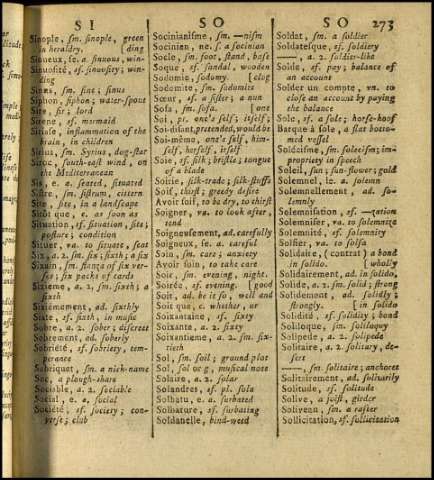 SI
SO
SO
273
Sinople, sm. sinople, green
in heraldry. [ding
Sinueux, se. a. sinuous, win-
Sinuosité, sf. sinuosity; win-
ding
Sinus, sm. sine; sinus
Siphon, siphon; water-spout
Sire, sir; lord
Sirene, sf. mermaid
Siriase, inflammation of the
brain, in children
Sirius, sm. Syrius, dog-star
Siroc, south-east wind, on
the Mediterranean
Sis, e. a. seated, situated
Sistre, sm. sistrum, cittern
Site, site, in a landscape
Sitôt que, c. as soon as
Situation, sf. situation, site;
posture; condition
Situer, va. to situate, seat
Six, a. 2. sm. six; sixth; a six
Sixain, sm. stanza of six ver-
ses; six packs of cards
Sixieme, a. 2. sm. sixth; a
sixth
Sixiémement, ad. sixthly
Sixte, sf. sixth, in music
Sobre, a. 2. sober; discreet
Sobrement, ad. soberly
Sobriété, sf. sobriety, tem-
perance
Sobriquet, sm. a nick-name
Soc, a plough-share
Sociable, a. 2. sociable
Social, e. a. social
Société, sf. society; con-
verse; club
Socinianisme, sm. —nism
Socinien, ne. s. a socinian
Socle, sm. foot, stand, base
Soque, sf. sandal, wooden
Sodomie, sodomy. [clog
Sodomite, sm. sodomite
Sœur, sf. a sister; a nun
Sofa, sm. sofa. [one
Soi, pr. one's self; itself;
Soi-disant, pretended, would be
Soi-même, one's self, him-
self, herself, itself
Soie, sf. silk; bristle; tongue
of a blade
Soirie, silk-trade; silk-stuffs
Soif, thirst; greedy desire
Avoir soif, to be dry, to thirst
Soigner, va. to look after,
tend
Soigneusement, ad. carefully
Soigneux, se. a. careful
Soin, sm. care; anxiety
Avoir soin, to take care
Soir, sm. evening, night.
Soirée, sf. evening. [good
Soit, ad. be it so, well and
Soit que, c. whether, or
Soixantaine, sf. sixty
Soixante, a. 2. sixty
Soixantieme, a. 2. sm. six-
tieth
Sol, sm. soil; ground plot
Sol, sol or g, musical note
Solaire, a. 2. solar
Solandres, sf. pl. sola
Solbatu, e. a. surbated
Solbature, sf. surbating
Soldanelle, bind-weed
Soldat, sm. a soldier
Soldatesque, sf. soldiery
——, a. 2. soldier-like
Solde, sf. pay; balance of
an account
Solder un compte, vn. to
close an account by paying
the balance
Sole, sf. a sole; horse-hoof
Barque à sole, a flat bottom-
med vessel
Solécisme, sm. solecism; im-
propriety in speech
Soleil, sun; sun-flower; gold
Solemnel, le. a. solemn
Solemnellement, ad. so-
lemnly
Solemnisation, sf. —zation
Solemniser, va. to solemnize
Solemnité, sf. solemnity
Solfier, va. to solfa
Solidaire, (contrat) a bond
in solido. [wholly
Solidairement, ad. in solido,
Solide, a. 2. sm. solid; strong
Solidement, ad. solidly;
strongly. [in solido
Solidité, sf. solidity; bond
Soliloque, sm. soliloquy
Solipede, a. 2. solipede
Solitaire, a. 2. solitary, de-
sert
——, sm. solitaire; anchoret
Solitairement, ad. solitarily
Solitude, sf. solitude
Solive, a joist, girder
Soliveau, sm. a rafter
Sollicitation, sf. sollicitation